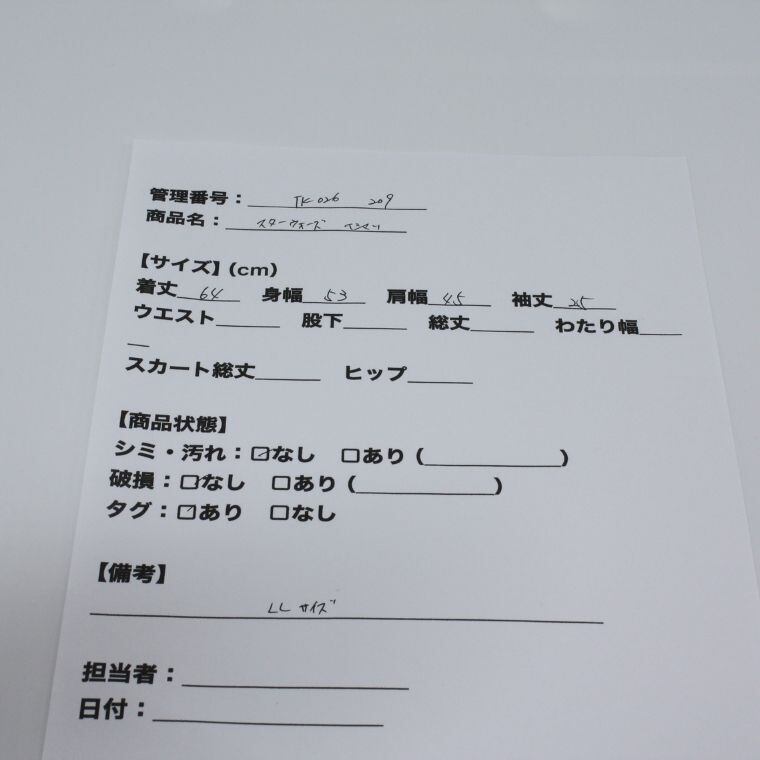 管理番号：TK-026 209
商品名：スターウォーズ
【サイズ】(cm)
着丈 64 身幅 53 肩幅 45 袖丈 25
ウエスト______ 股下______ 総丈______ わたり幅____
__
スカート総丈______ ヒップ______
【商品状態】
シミ・汚れ：☑なし ☐あり (____________)
破損：☐なし ☐あり (____________)
タグ：☑あり ☐なし
【備考】
LLサイズ
担当者：____________________
日付：____________________